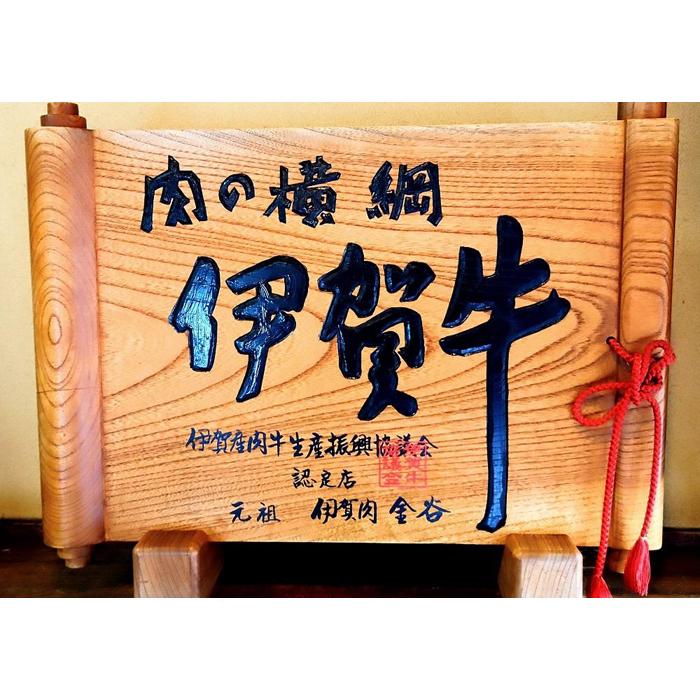 肉の横綱
伊賀牛
伊賀産肉牛生産振興協議会
認定店
元祖 伊賀肉 金谷